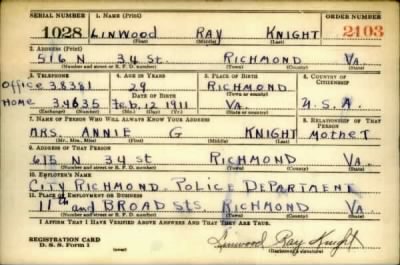 SERIAL NUMBER 1. NAME (Print) ORDER NUMBER
1028 LINWOOD RAY KNIGHT 2103
(First) (Middle) (Last)
2. ADDRESS (Print)
516 N 34 St RICHMOND VA.
(Number and street or R. F. D. number) (Town) (County) (State)
3. TELEPHONE 4. AGE IN YEARS 5. PLACE OF BIRTH 6. COUNTRY OF CITIZENSHIP
Office 3.8381 29 RICHMOND
DATE OF BIRTH (Town or county)
Home 3.4635 Feb. 12 1911 VA. U.S.A.
(Exchange) (Number) (Mo.) (Day) (Yr.) (State or country)
7. NAME OF PERSON WHO WILL ALWAYS KNOW YOUR ADDRESS 8. RELATIONSHIP OF THAT PERSON
MRS. ANNIE G KNIGHT MOTHER
(Mr., Mrs., Miss) (First) (Middle) (Last)
9. ADDRESS OF THAT PERSON
615 N 34 St RICHMOND VA.
(Number and street or R. F. D. number) (Town) (County) (State)
10. EMPLOYER'S NAME
CITY RICHMOND. POLICE DEPARTMENT
11. PLACE OF EMPLOYMENT OR BUSINESS
11th and BROAD STS. RICHMOND VA.
(Number and street or R. F. D. number) (Town) (County) (State)
I AFFIRM THAT I HAVE VERIFIED ABOVE ANSWERS AND THAT THEY ARE TRUE.
REGISTRATION CARD
D. S. S. Form 1 (over) Linwood Ray Knight
(Registrant's signature)